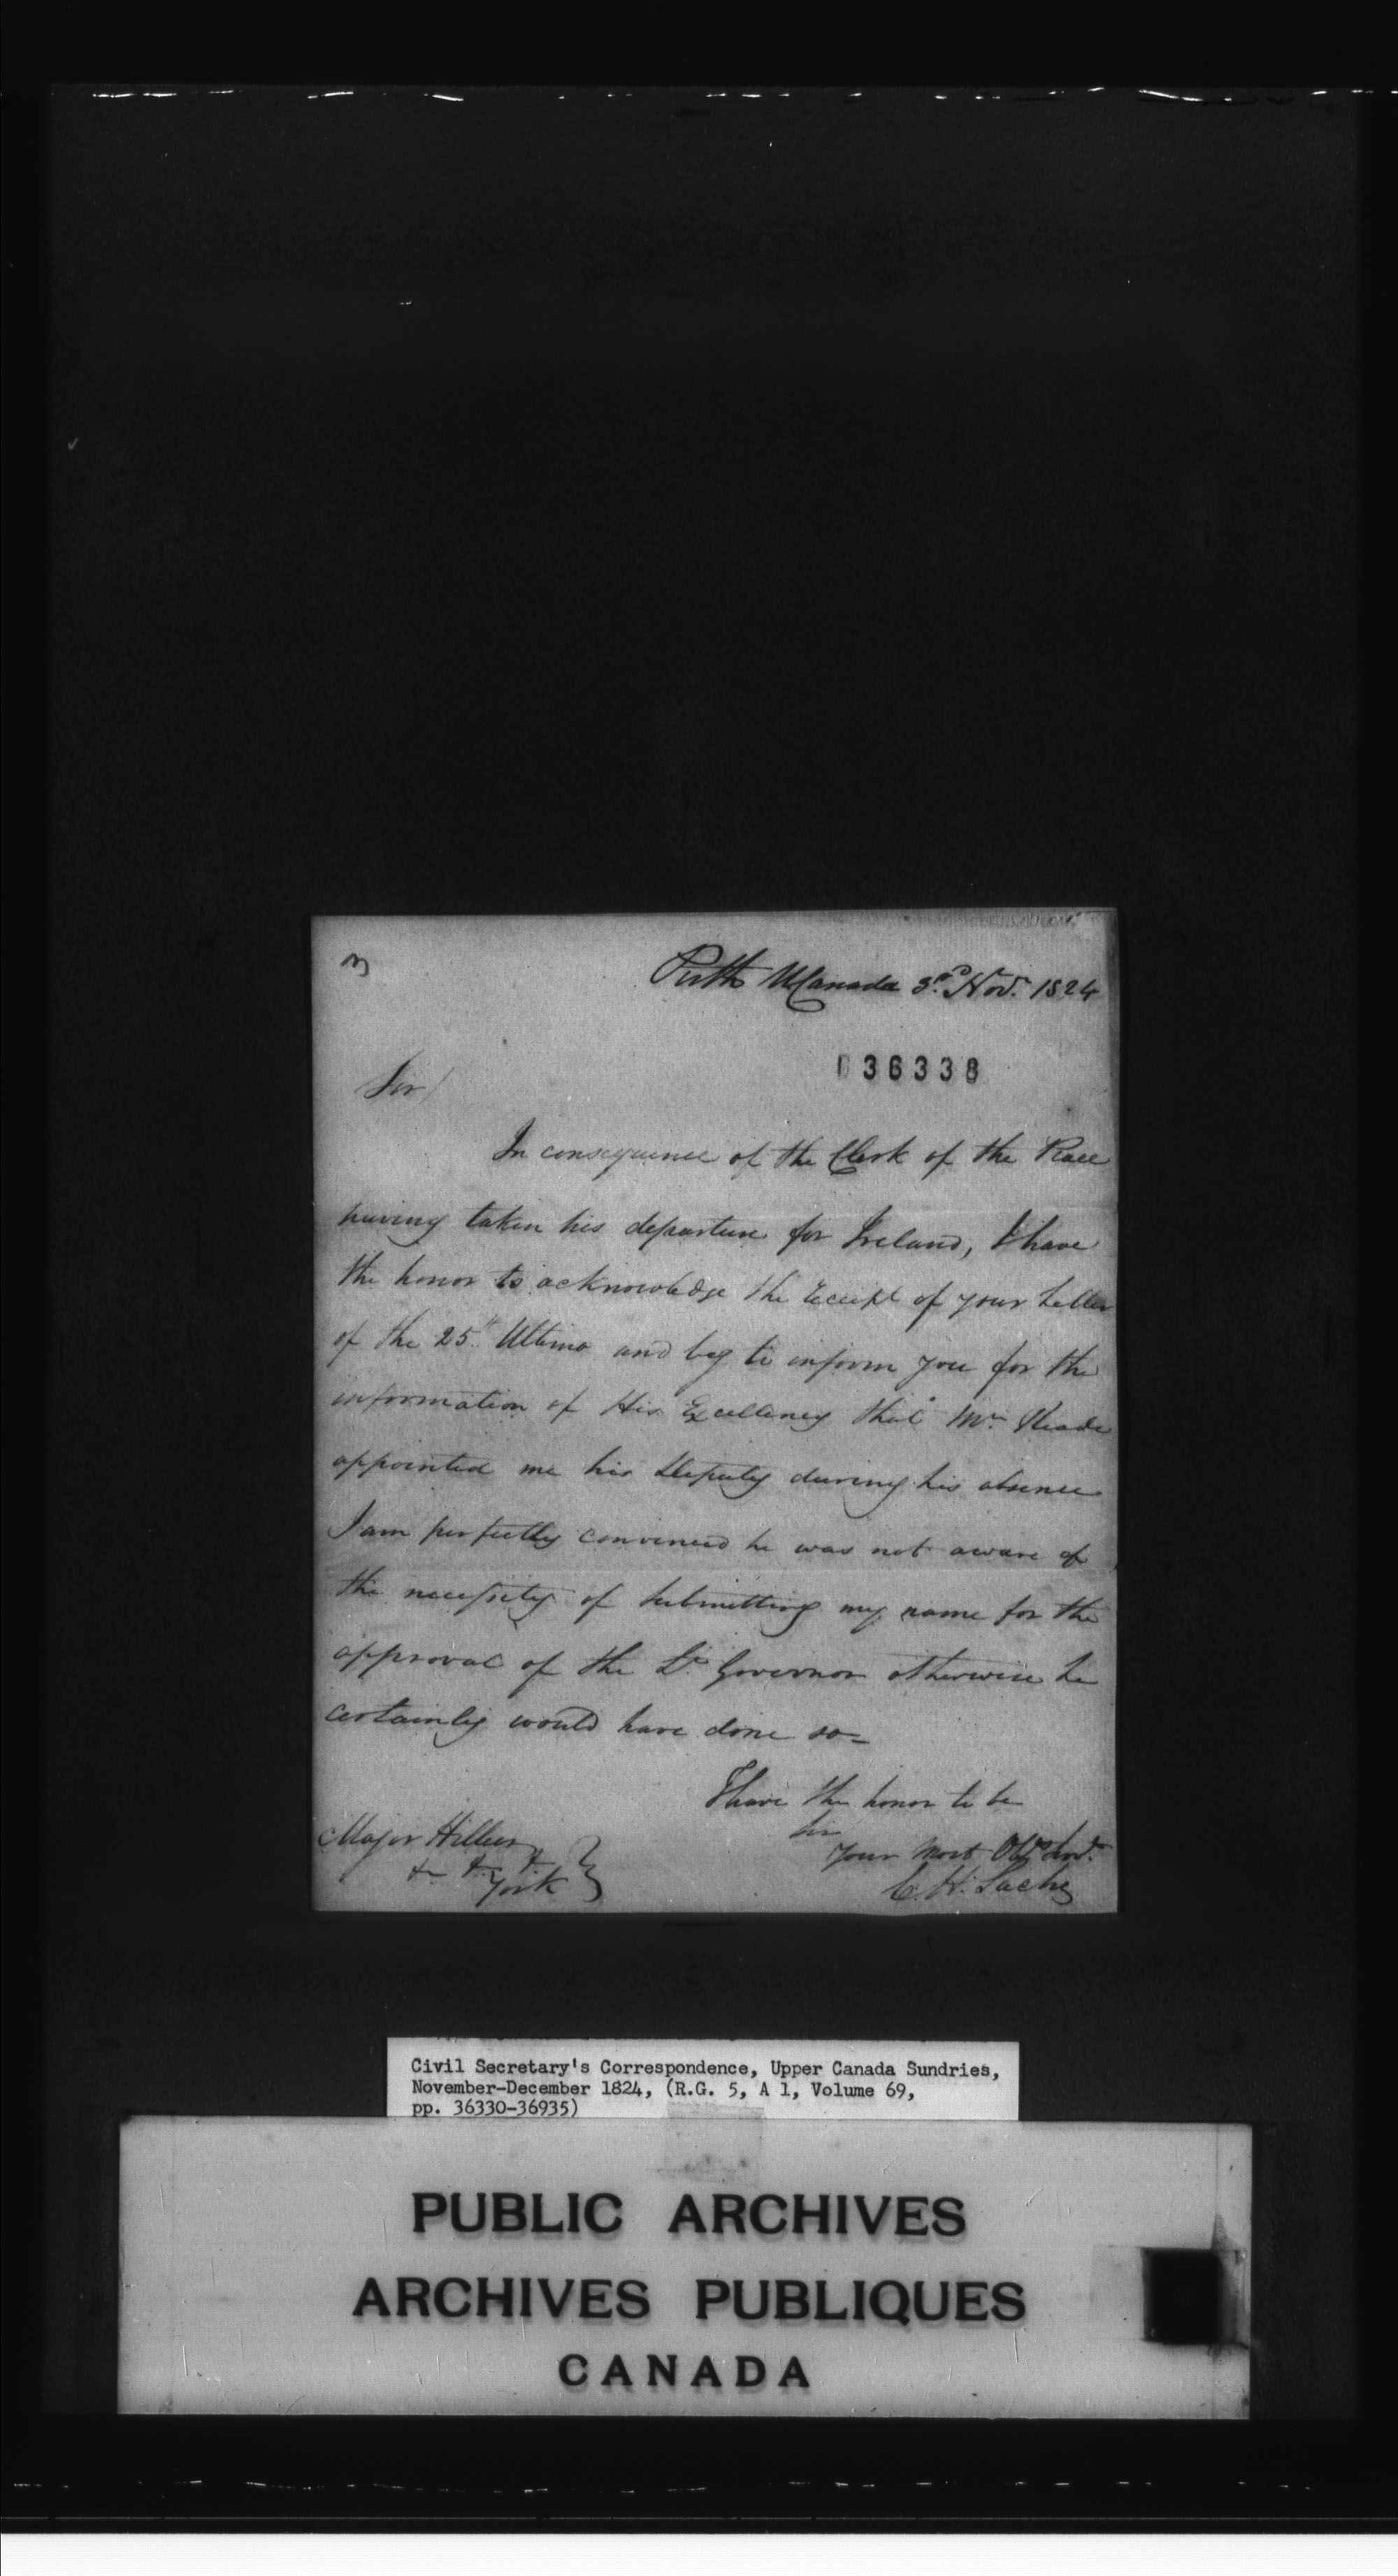 3
Perth U Canada 3rd Nov. 1824
36338
Sir/
In consequence of the Clerk of the Peace
having taken his departure for Ireland, I have
the honor to acknowledge the receipt of your Letter
of the 25th Ultimo and beg to inform you for the
information of His Excellency that Mr. Reade
appointed me his Deputy during his absence
I am perfectly convinced he was not aware of
the necessity of submitting my name for the
approval of the Lt Governor otherwise he
certainly would have done so=
I have the honor to be
Sir
Your Most Obt Servt.
C. H. Sache
Major Hillier
& & &
York
Civil Secretary's Correspondence, Upper Canada Sundries,
November-December 1824, (R.G. 5, A 1, Volume 69,
pp. 36330-36935)
PUBLIC ARCHIVES
ARCHIVES PUBLIQUES
CANADA